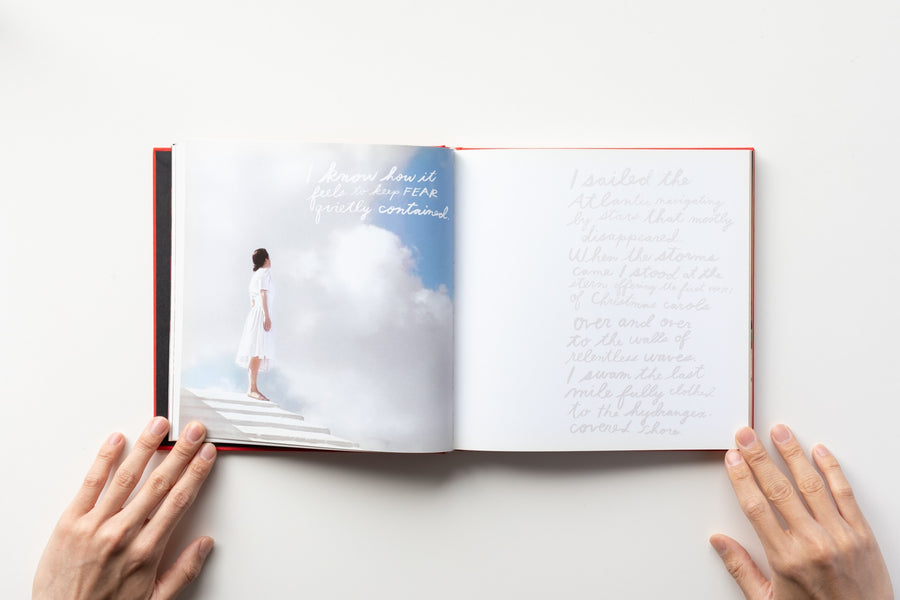 I know how it
feels to keep FEAR
quietly contained.
I sailed the
Atlantic navigating
by stars that mostly
disappeared.
When the storms
came I stood at the
stern offering the first
of Christmas carols
over and over
to the walls of
relentless waves.
I swam the last
mile fully clothed
to the hydrangea-
covered shore.